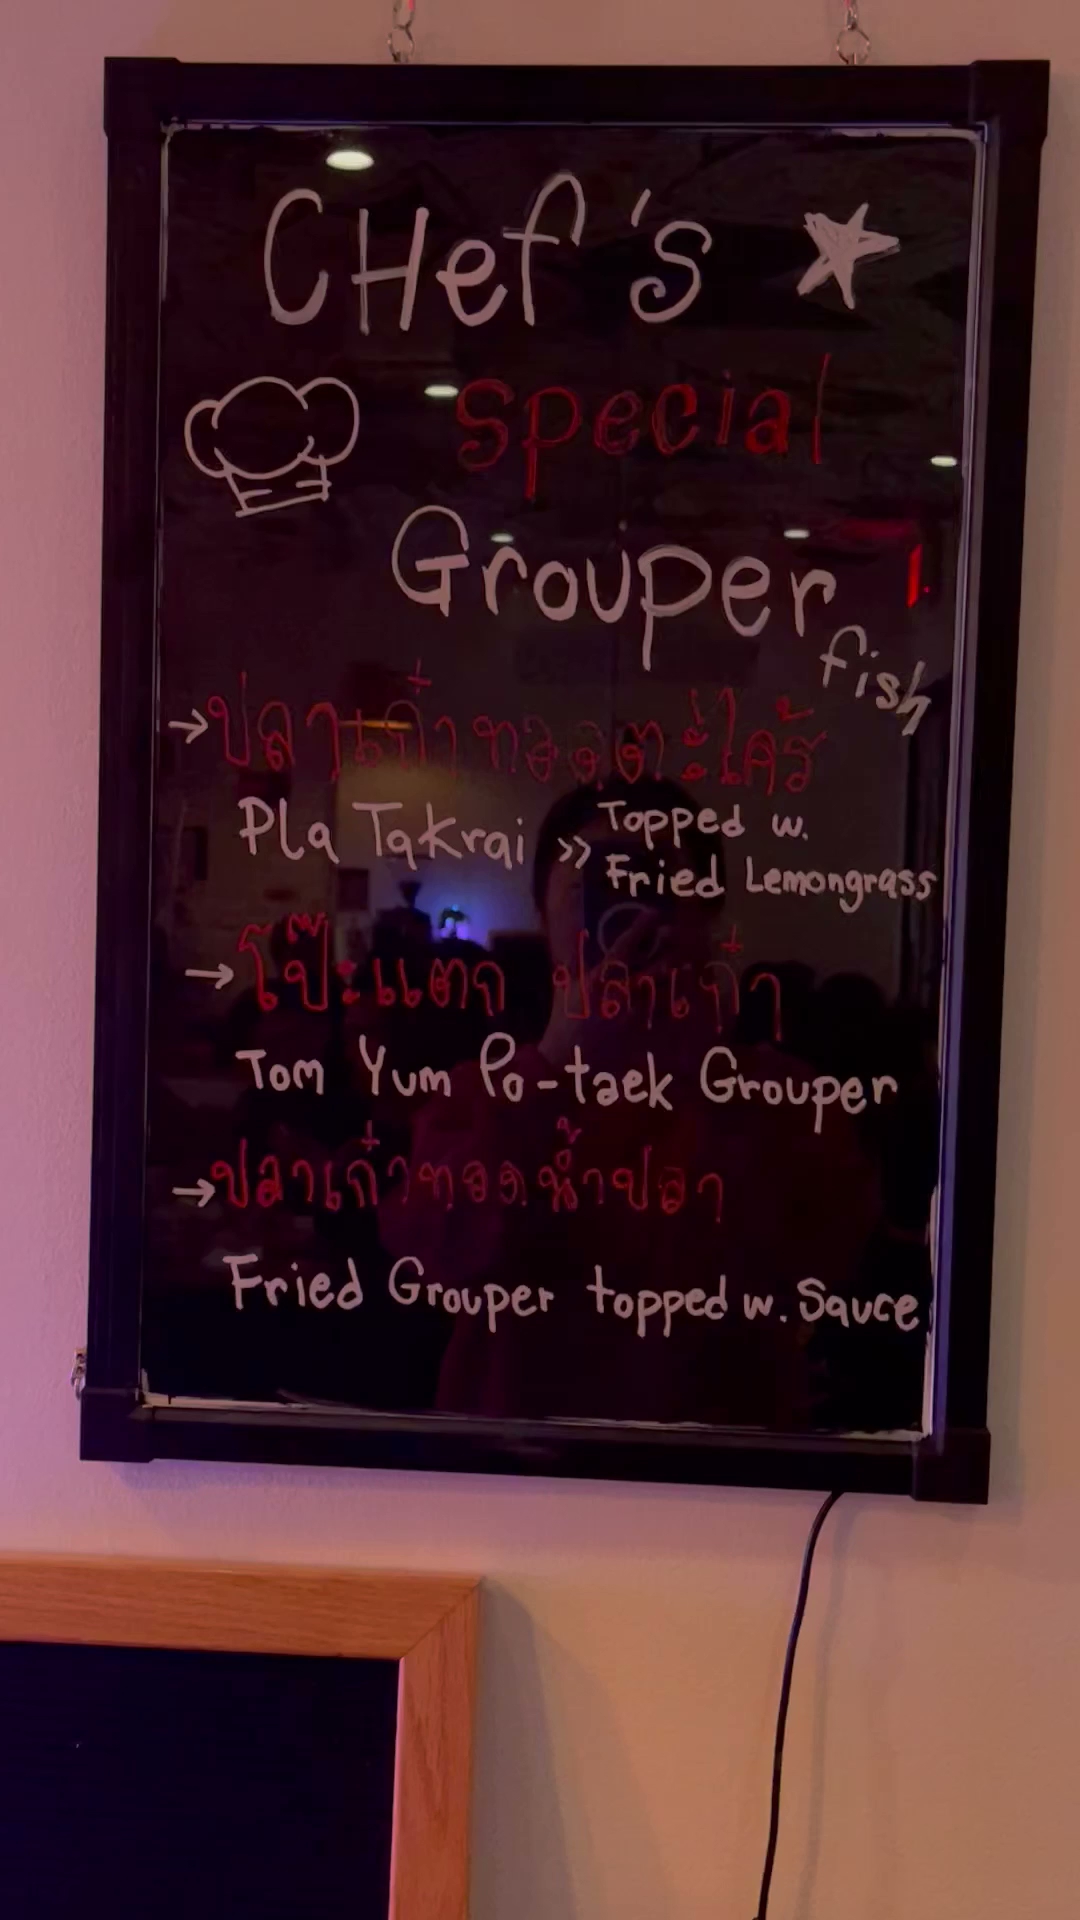 CHef's
special
Grouper
fish
→ปลาเก๋าทอดตะไคร้
Pla Takrai >> Topped w.
Fried Lemongrass
→โป๊ะแตก ปลาเก๋า
Tom Yum Po-taek Grouper
→ปลาเก๋าทอดน้ำปลา
Fried Grouper topped w. Sauce